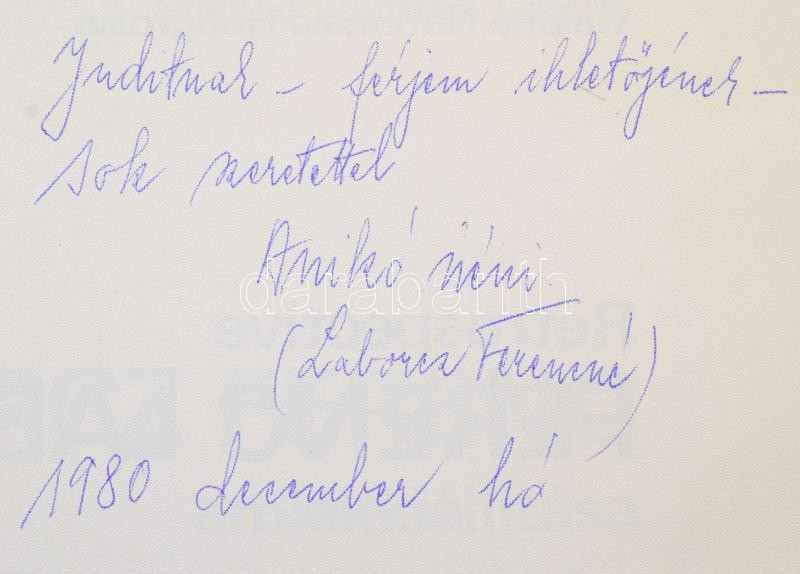 Juditnak – férjem ihletőjének –
sok szeretettel
Anikó néni
(Laborcz Ferencné)
1980 december hó
darabanth